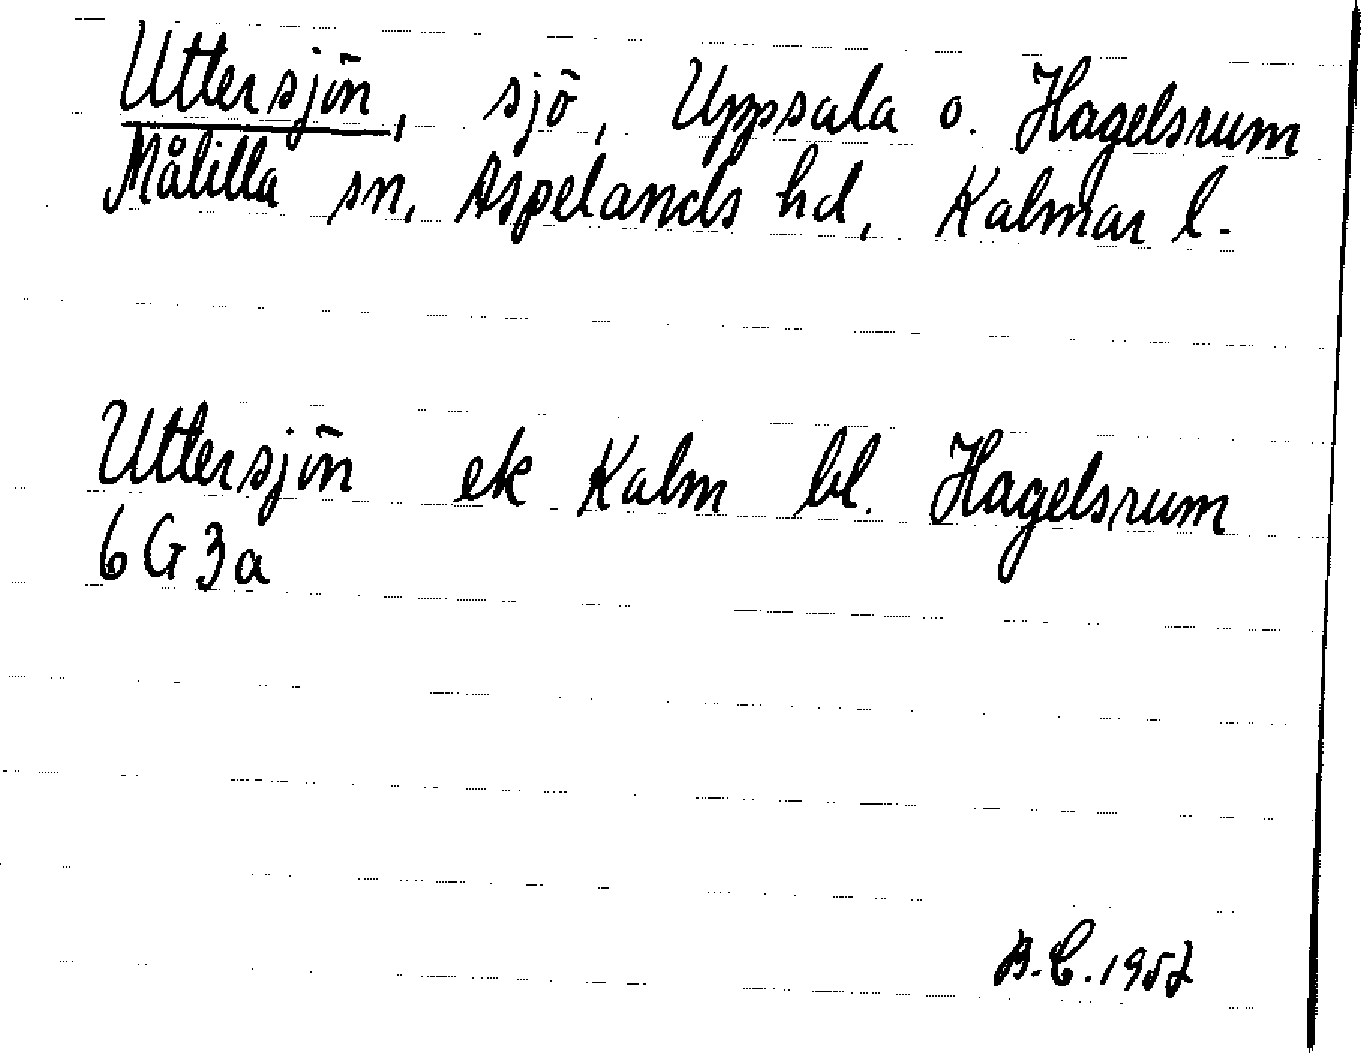 Uttersjön, sjö, Uppsala o. Hagelsrum
Målilla sn, Aspelands hd, Kalmar l.
Uttersjön ek Kalm bl. Hagelsrum
6G3a
B.C. 1952